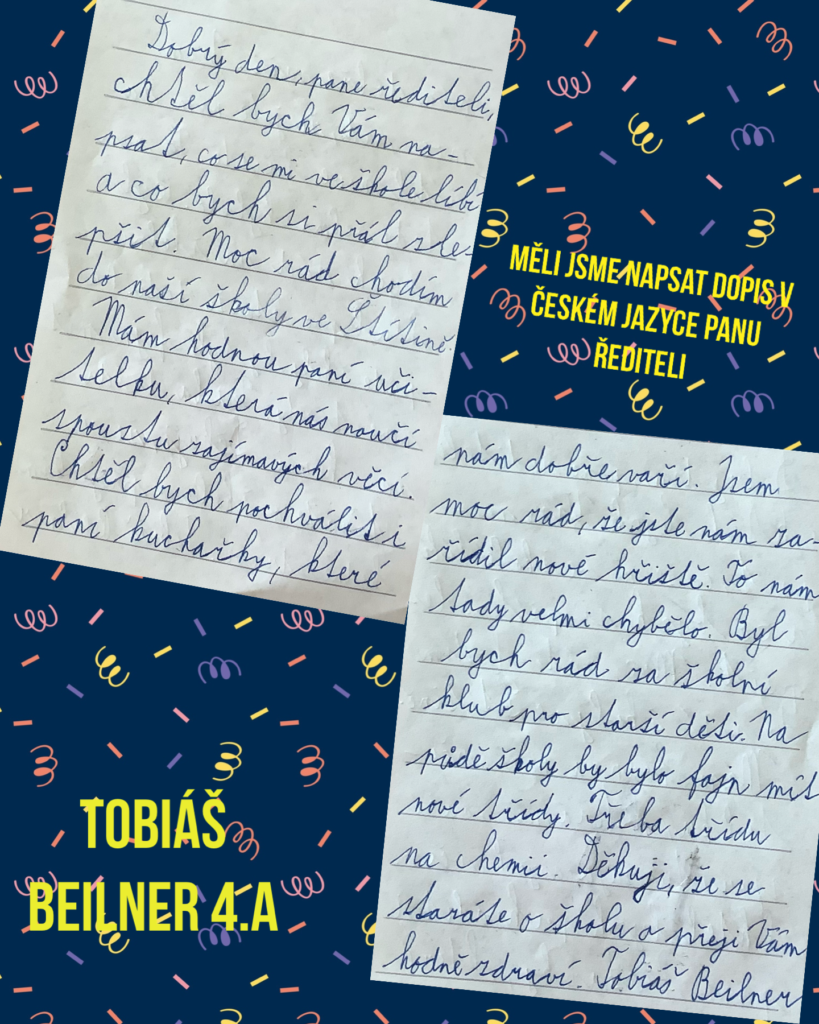 Dobrý den, pane řediteli,
chtěl bych Vám na-
psat, co se mi ve škole líbí
a co bych si přál zle-
pšit. Moc rád chodím
do naší školy ve Štítině.
Mám hodnou paní uči-
telku, která nás naučí
spoustu zajímavých věcí.
Chtěl bych pochválit i
paní kuchařky, které
MĚLI JSME NAPSAT DOPIS V
ČESKÉM JAZYCE PANU
ŘEDITELI
nám dobře vaří. Jsem
moc rád, že jste nám za-
řídil nové hřiště. To nám
tady velmi chybělo. Byl
bych rád za školní
klub pro starší děti. Na
půdě školy by bylo fajn mít
nové třídy. Třeba třídu
na chemii. Děkuji, že se
staráte o školu a přeji Vám
hodně zdraví. Tobiáš Beilner
TOBIÁŠ
BEILNER 4.A